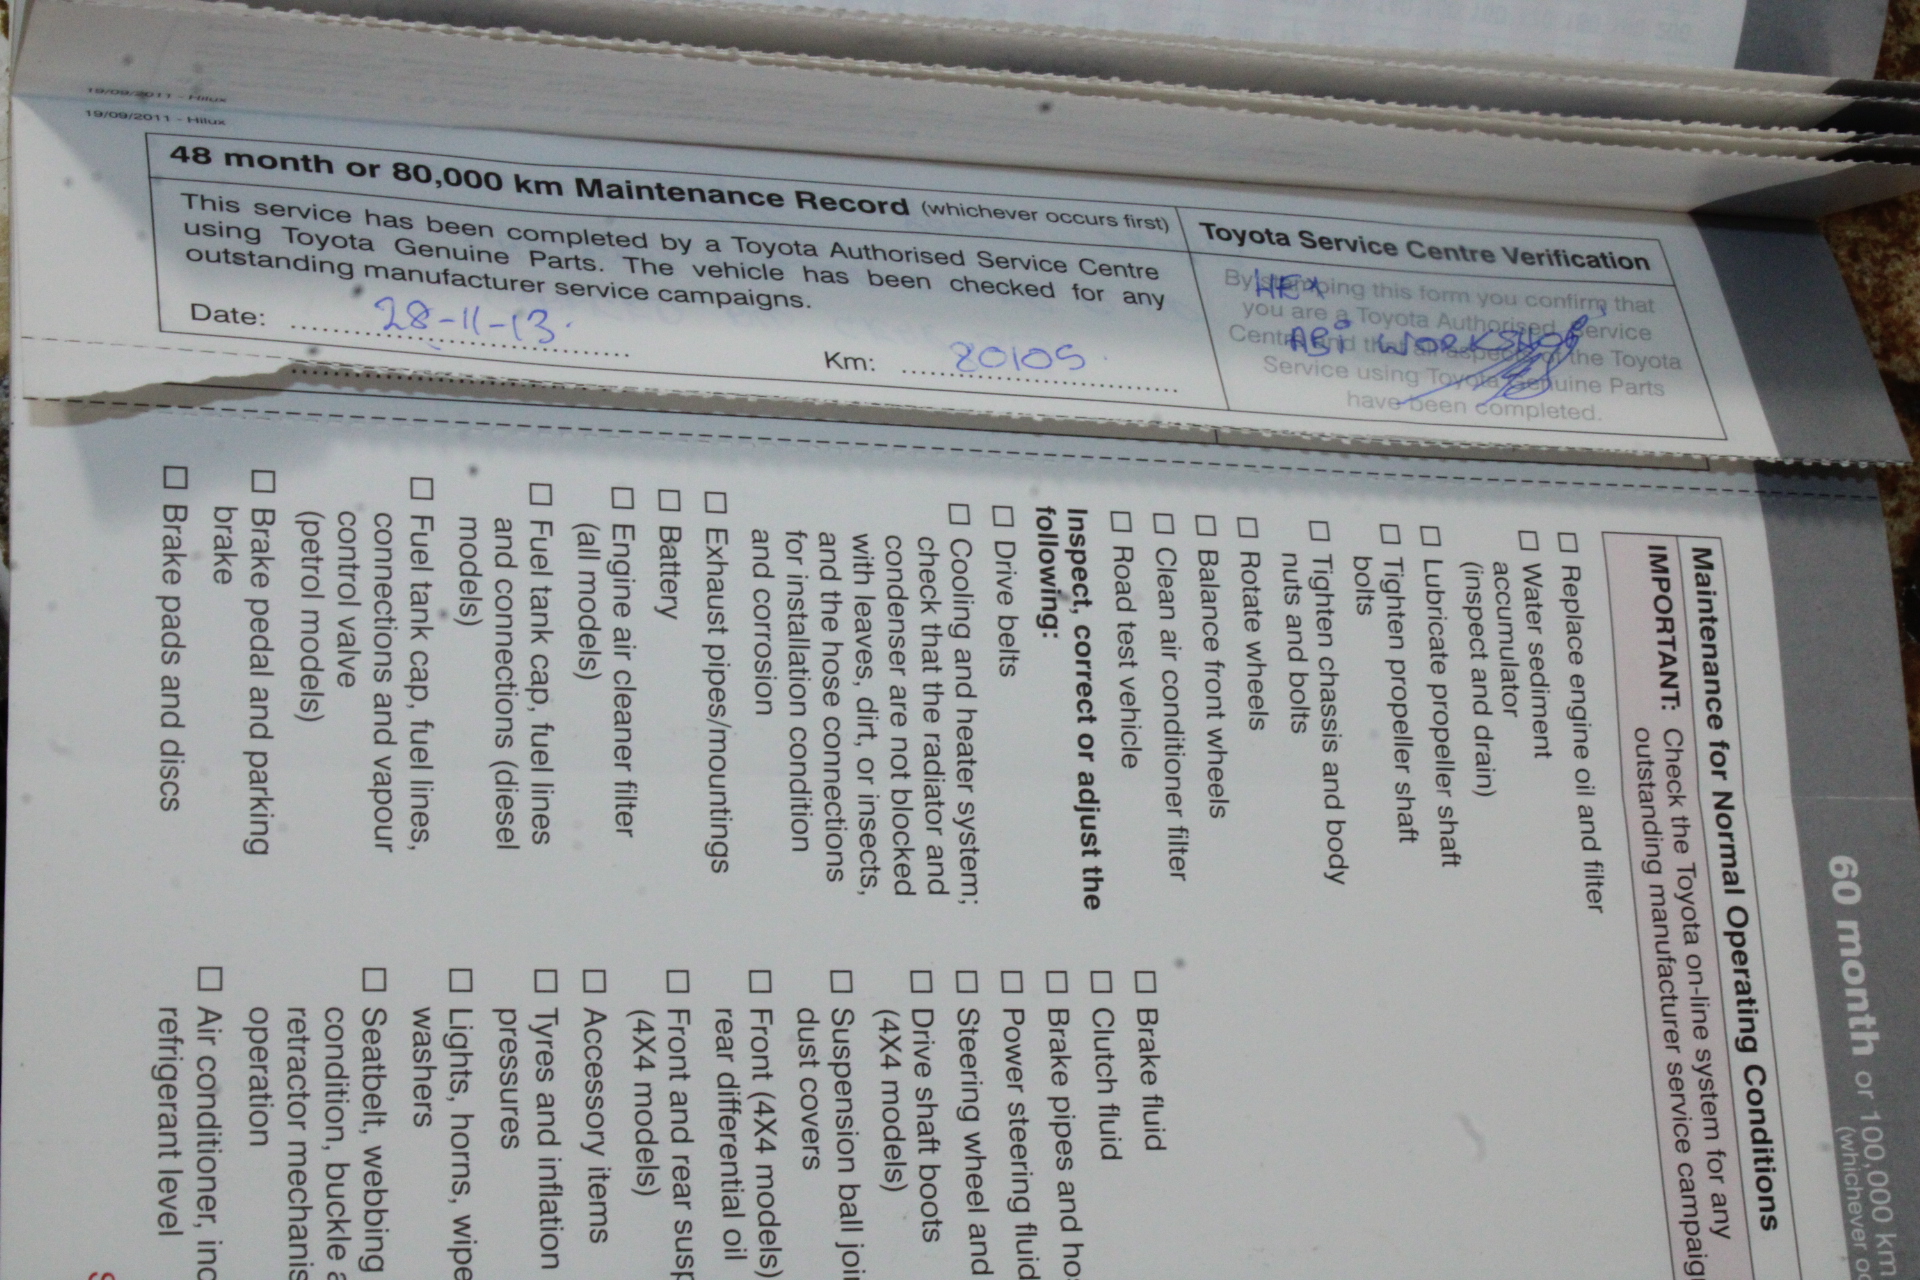 19/09/2011 - Hilux
19/09/2011 - Hilux
48 month or 80,000 km Maintenance Record (whichever occurs first)
This service has been completed by a Toyota Authorised Service Centre
using Toyota Genuine Parts. The vehicle has been checked for any
outstanding manufacturer service campaigns.
Date: 28-11-13.
Km: 20105
Toyota Service Centre Verification
By stamping this form you confirm that
you are a Toyota Authorised Service
Centre and that all aspects of the Toyota
Service using Toyota Genuine Parts
have been completed.
ABi WORKSHOP
60 month or 100,000 km
(whichever
Maintenance for Normal Operating Conditions
IMPORTANT: Check the Toyota on-line system for any
outstanding manufacturer service campaig
☐ Replace engine oil and filter
☐ Water sediment
accumulator
(inspect and drain)
☐ Lubricate propeller shaft
☐ Tighten propeller shaft
bolts
☐ Tighten chassis and body
nuts and bolts
☐ Rotate wheels
☐ Balance front wheels
☐ Clean air conditioner filter
☐ Road test vehicle
Inspect, correct or adjust the
following:
☐ Drive belts
☐ Cooling and heater system;
check that the radiator and
condenser are not blocked
with leaves, dirt, or insects,
and the hose connections
for installation condition
and corrosion
☐ Exhaust pipes/mountings
☐ Battery
☐ Engine air cleaner filter
(all models)
☐ Fuel tank cap, fuel lines
and connections (diesel
models)
☐ Fuel tank cap, fuel lines,
connections and vapour
control valve
(petrol models)
☐ Brake pedal and parking
brake
☐ Brake pads and discs
☐ Brake fluid
☐ Clutch fluid
☐ Brake pipes and ho
☐ Power steering fluid
☐ Steering wheel and
☐ Drive shaft boots
(4X4 models)
☐ Suspension ball joi
dust covers
☐ Front (4X4 models)
rear differential oil
☐ Front and rear susp
(4X4 models)
☐ Accessory items
☐ Tyres and inflation
pressures
☐ Lights, horns, wipe
washers
☐ Seatbelt, webbing
condition, buckle a
retractor mechanis
operation
☐ Air conditioner, inc
refrigerant level